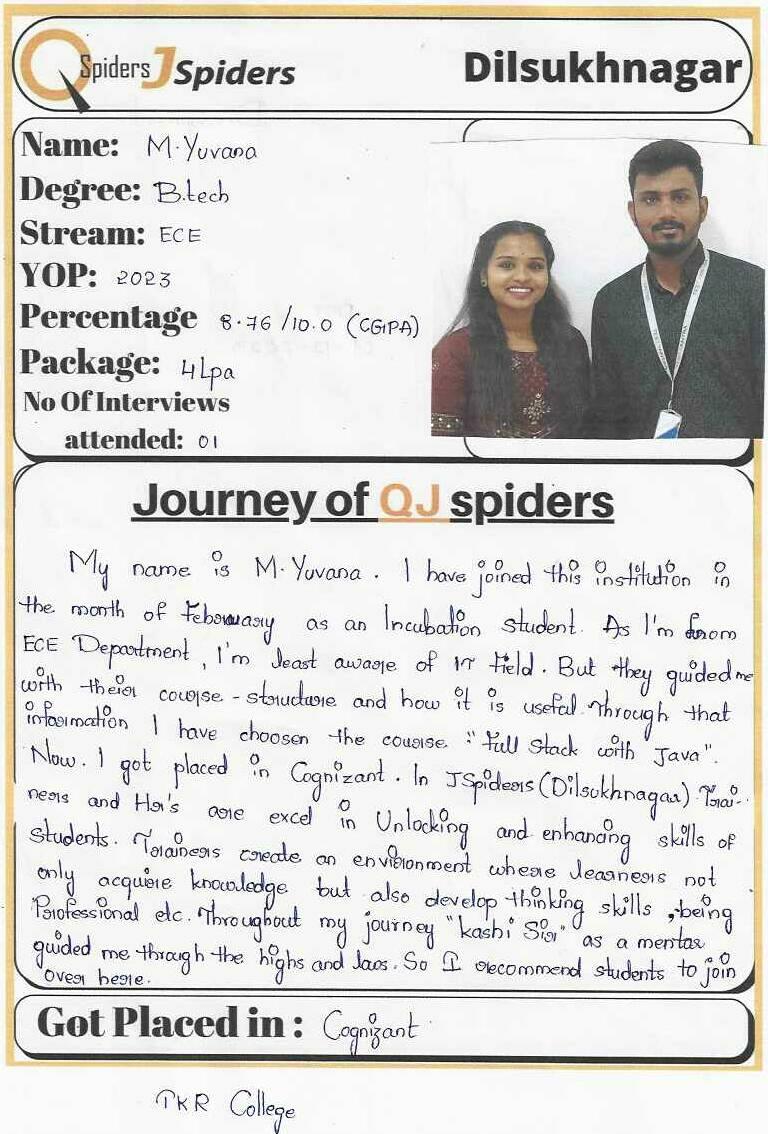 QSpiders JSpiders Dilsukhnagar
Name: M. Yuvana
Degree: B.tech
Stream: ECE
YOP: 2023
Percentage 8.76/10.0 (CGPA)
Package: 4Lpa
No Of Interviews
attended: 01
Journey of QJ spiders
My name is M. Yuvana. I have joined this institution in
the month of February as an Incubation student. As I'm from
ECE Department, I'm least aware of IT field. But they guided me
with their course-structure and how it is useful. Through that
information I have choosen the course "Full Stack with Java".
Now. I got placed in Cognizant. In JSpiders (Dilsukhnagar) Trai-
ners and Hr's are excel in Unlocking and enhancing skills of
Students. Trainers create an environment where learners not
only acquire knowledge but also develop thinking skills, being
Professional etc. Throughout my journey "kashi Sir" as a mentor
guided me through the highs and laos. So I recommend students to join
over here.
Got Placed in: Cognizant
TKR College